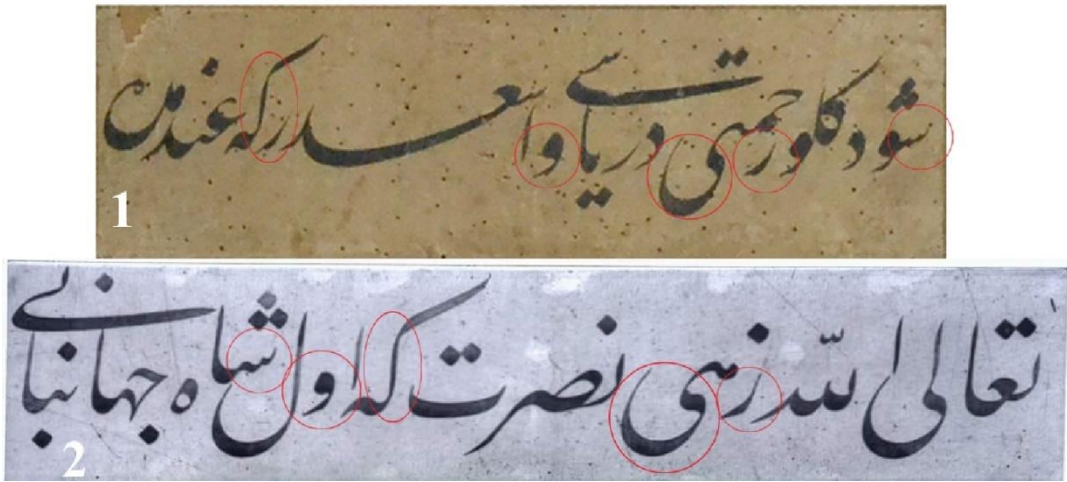 شو دکلو رحمتی دریاسی واسعدر که
1
تعالی الله زهی نصرت که اول شاه جهانبانی
2